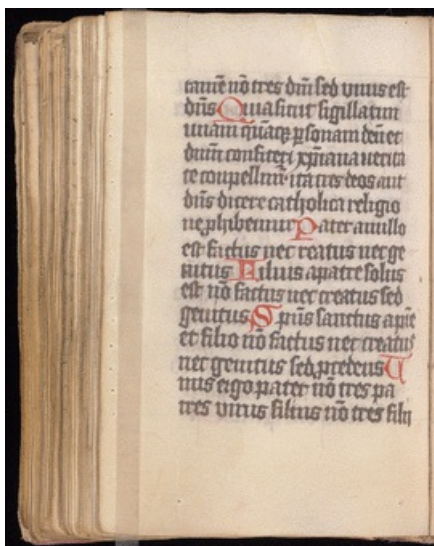 tamē nō tres dn̄i sed vnus est
dn̄s Quia sicut sigillatim
unam quāq̨ ꝑsonam deū et
dnūm confiteri xp̄iana uerita
te compellimr̄ ita tres deos aut
dn̄s dicere catholica religio
ne ꝓhibemur Pater a nullo
est factus nec creatus nec ge
nitus Filius a patre solus
est nō factus nec creatus sed
genitus Spūs sanctus a pr̄e
et filio nō factus nec creatus
nec genitus sed ꝓcedens U
nus ergo pater nō tres pa
tres vnus filius nō tres filij